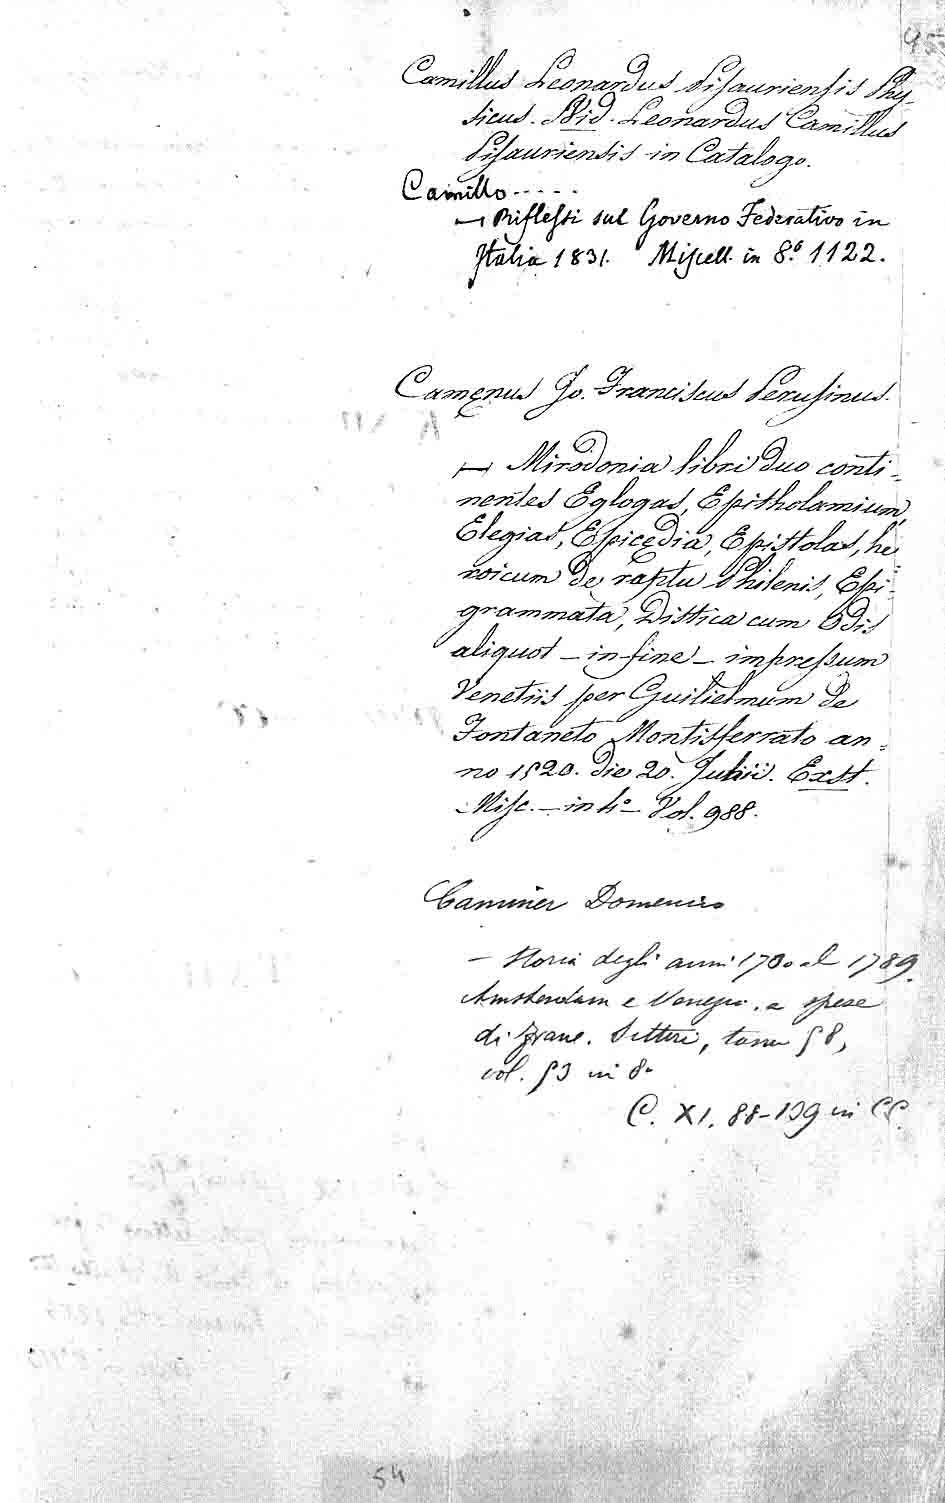 45
Camillus Leonardus Pisauriensis Phy-
sicus. Vid. Leonardus Camillus
Pisauriensis in Catalogo.
Camillo.....
— Riflessi sul Governo Federativo in
Italia 1831. Miscell. in 8.º 1122.
Camęnus Jo. Franciscus Perusinus.
— Mirodonia libri duo conti-
nentes Eglogas, Epithalamium,
Elegias, Epicędia, Epistolas, he-
roicum de raptu Philenis, Epi-
grammata, Distica cum Odis
aliquot - in fine - impressum
Venetiis per Guilielmum de
Fontaneto Montisferrato an-
no 1520. die 20. Julii. Exst.
Misc. - in 4º - Vol. 988.
Caminer Domenico
- Storia degli anni 1730 al 1789.
Amsterdam e Venezia, a spese
di Franc. Pitteri, tomi 58,
vol. 53 in 8º
C. XI. 88-139 in CC.
54